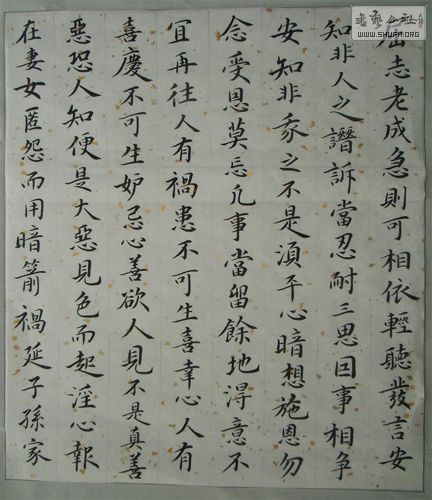 屈志老成急則可相依輕聽發言安
知非人之譖訴當忍耐三思因事相争
安知非我之不是須平心暗想施恩勿
念受恩莫忘凡事當留餘地得意不
宜再往人有禍患不可生喜幸心人有
喜慶不可生妒忌心善欲人見不是真善
惡恐人知便是大惡見色而起淫心報
在妻女匿怨而用暗箭禍延子孫家
書藝公社
WWW.SHUFA.ORG